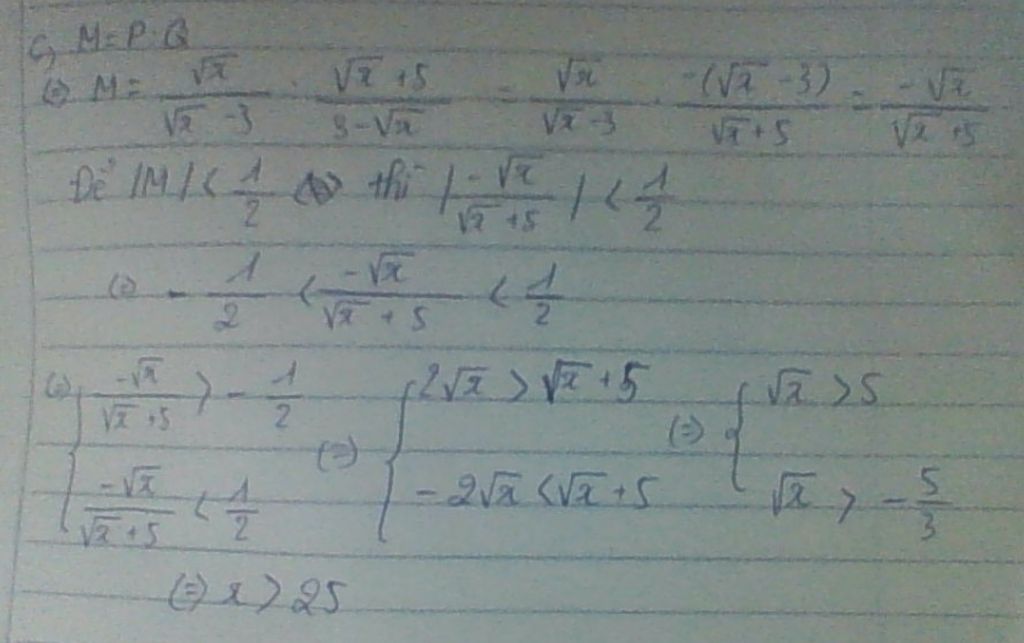 c, M=P.Q
(=) M = √x / (√x - 3) . (√x + 5) / (3 - √x) = √x / (√x - 3) . -(√x - 3) / (√x + 5) = -√x / (√x + 5)
Để |M| < 1/2 thì | -√x / (√x + 5) | < 1/2
(=) - 1/2 < -√x / (√x + 5) < 1/2
(=) { -√x / (√x + 5) > - 1/2 (=) { 2√x > √x + 5 (=) { √x > 5
-√x / (√x + 5) < 1/2 -2√x < √x + 5 √x > - 5/3
(=) x > 25